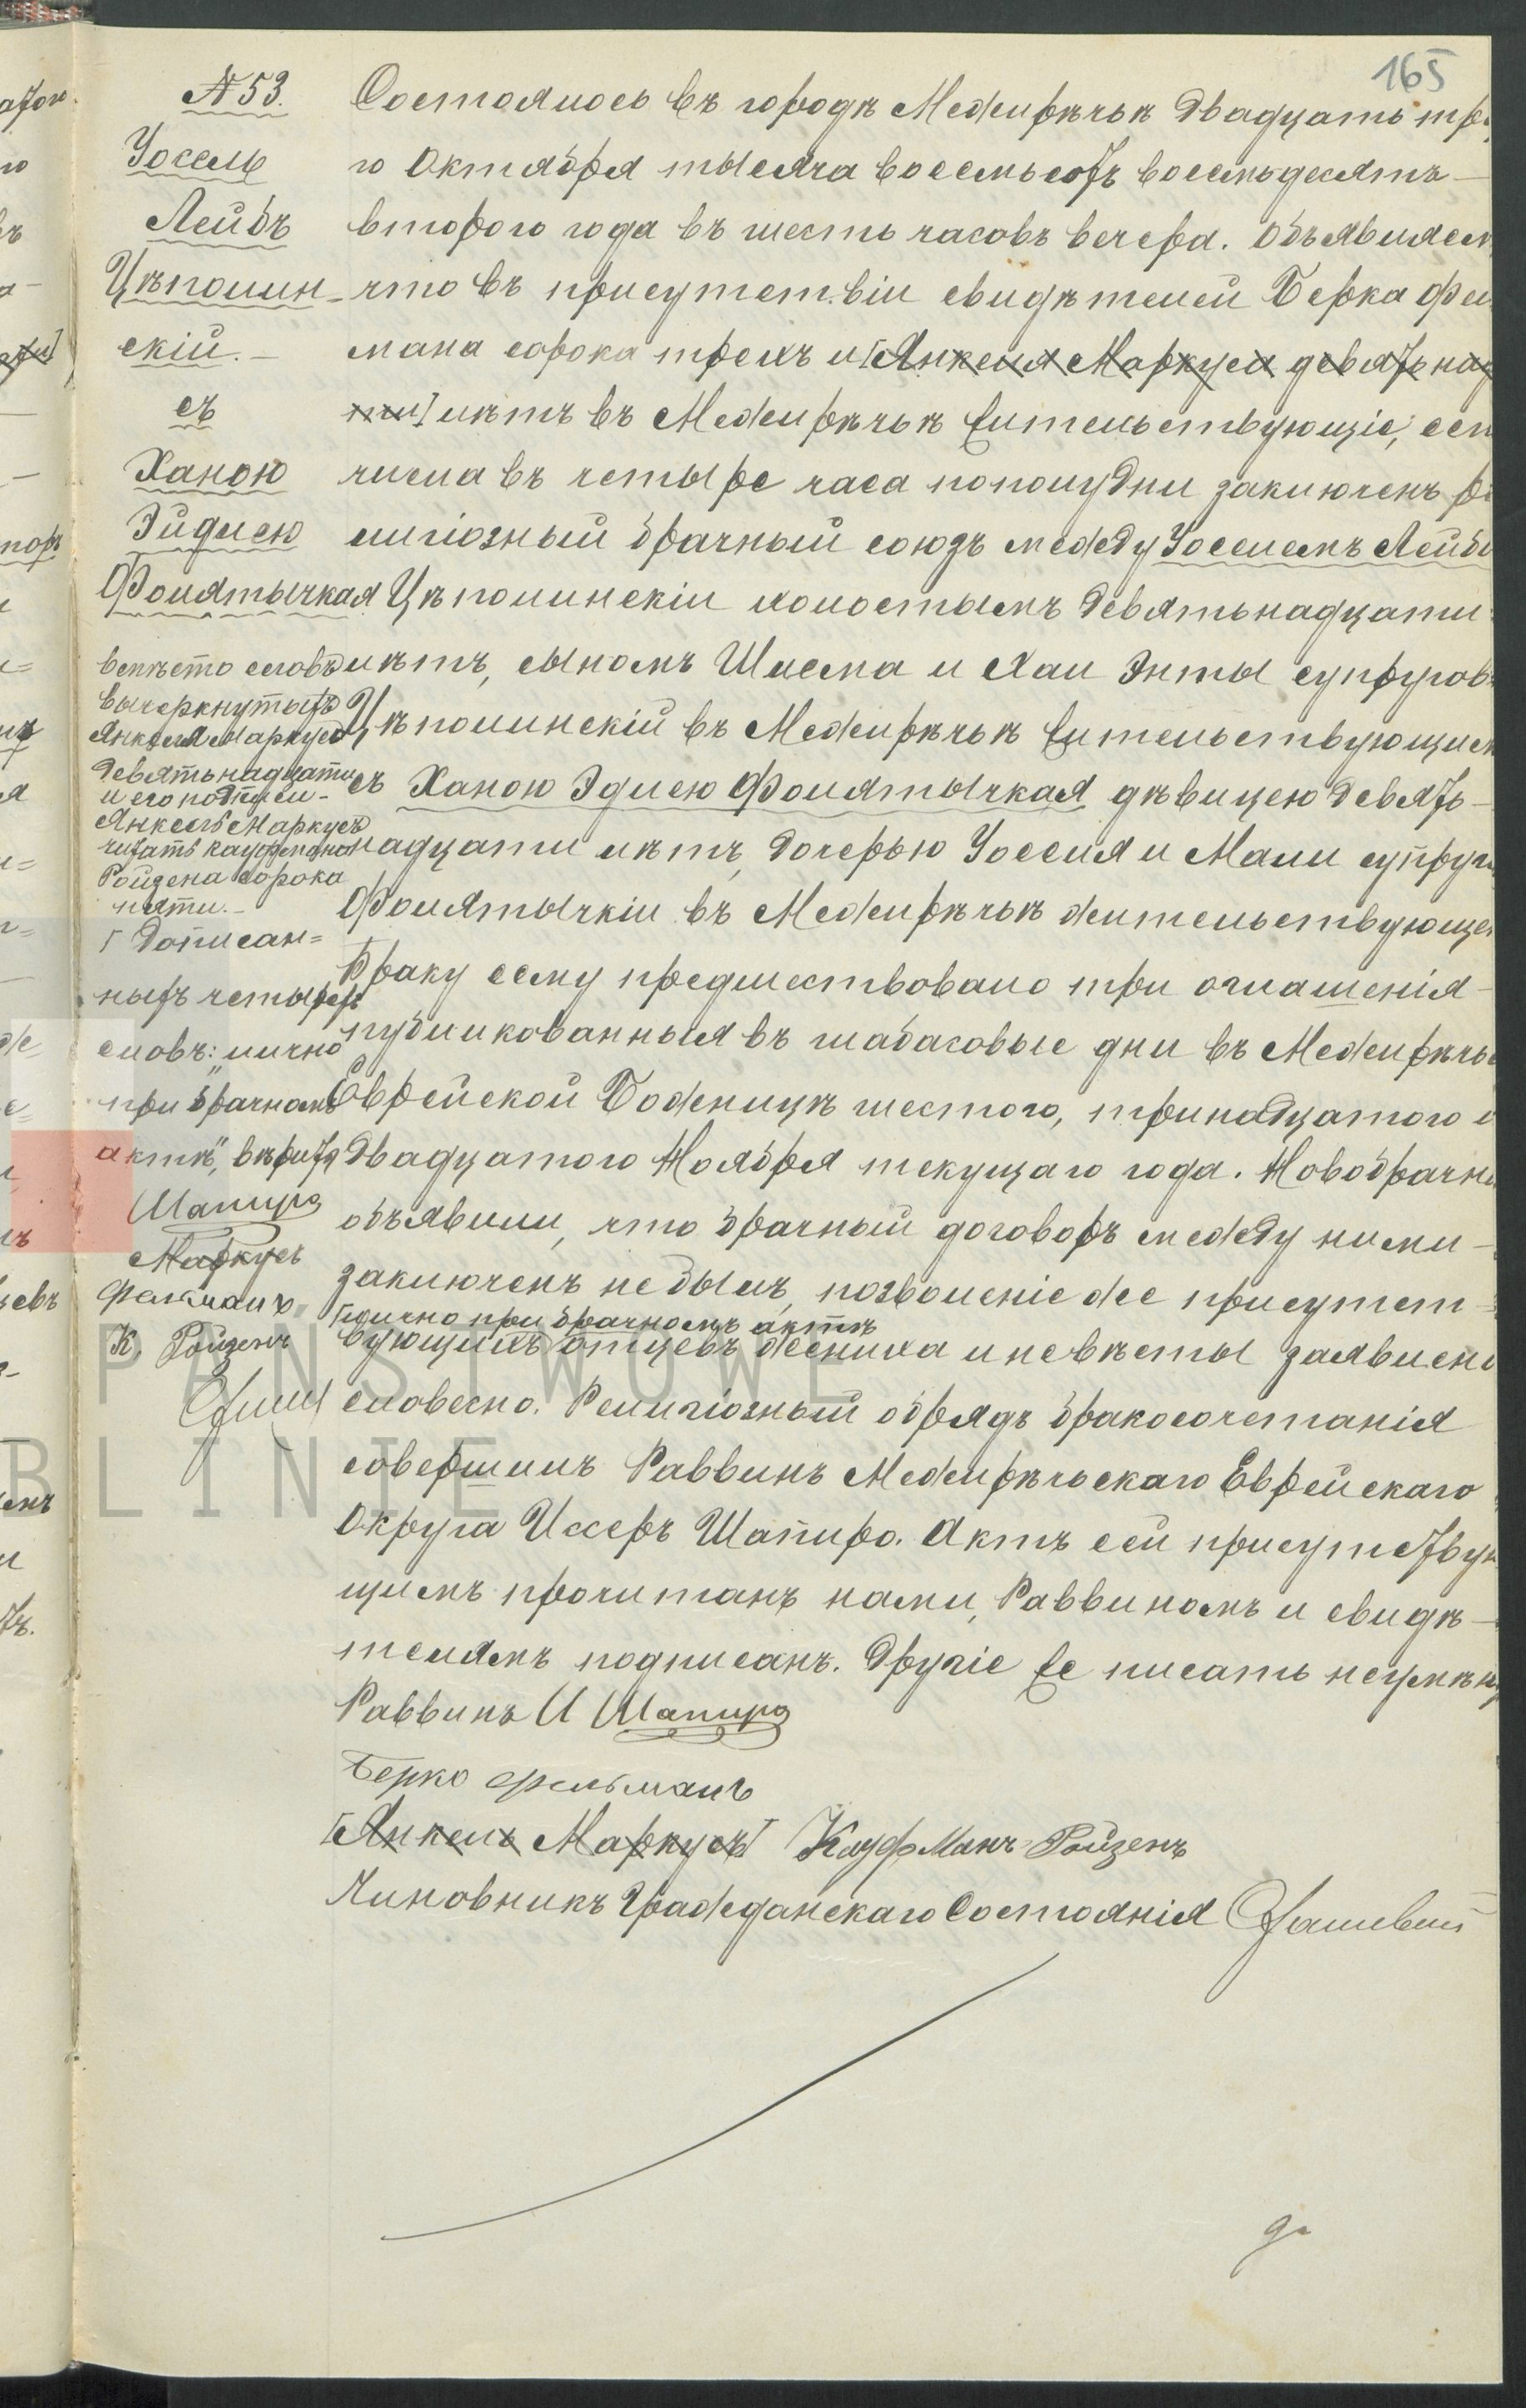 165
№ 53.
Іоссель
Лейбъ
Цѣполин-
скій.-
съ
Ханою
Эйдлею
Фолятычкая
вмѣсто словъ
вычеркнутыхъ
Янкеля Маркуса
девятьнадцати
и его подписи-
Янкель Маркусъ
читать Кауфмана
Ройзена сорока
пяти.-
Дописан=
ныхъ четырехъ
словъ: „лично
при брачномъ
актѣ", вѣрить
Шапиро
Маркусъ
Фельманъ
К. Ройзенъ
Состоялось въ городѣ Межирѣчьѣ двадцать тре
го Октября тысяча восемьсотъ восемьдесятъ-
второго года въ шесть часовъ вечера. Объявляем
что въ присутствіи свидѣтелей Берка Фел
мана сорока трехъ и [Янкеля Маркуса девятьнад
ти] лѣтъ въ Межирѣчьѣ жительствующіе, сег
числа въ четыре часа пополудни заключенъ ре
лигіозный брачный союзъ между Іосселемъ Лейбо
Цѣполинскіи холостымъ девятьнадцати
лѣтъ, сыномъ Шлема и Хаи Энты супругов
Цѣполинскій въ Межирѣчьѣ жительствующим
съ Ханою Эдлею Фолятычкая дѣвицею девять-
надцати лѣтъ, дочерью Іосселя и Мали супруг
Фолятычкіи въ Межирѣчьѣ жительствующе
Браку сему предшествовало три оглашенія-
публикованныя въ шабасовые дни въ Межирѣчь
Еврейской Боженицѣ шестого, тринадцатого и
двадцатого Ноября текущаго года. Новобрачны
объявили, что брачный договоръ между ними-
заключенъ не былъ, позволеніе же присутст-
[лично при брачномъ актѣ
вующихъ отцевъ жениха и невѣсты заявлено
словесно. Религіозный обрядъ бракосочетанія
совершилъ Раввинъ Межирѣчьскаго Еврейскаго
Округа Иссеръ Шапиро. Актъ сей присутствую
щимъ прочитанъ нами, Раввиномъ и свидѣ-
телямъ подписанъ. Другіе же писать неумѣю
Раввинъ И Шапиро
Берко Фельманъ
[Янкель Маркусъ] Кауфманъ Ройзенъ
Чиновникъ Гражданскаго Состоянія
PAŃSTWOWE
BLINIE